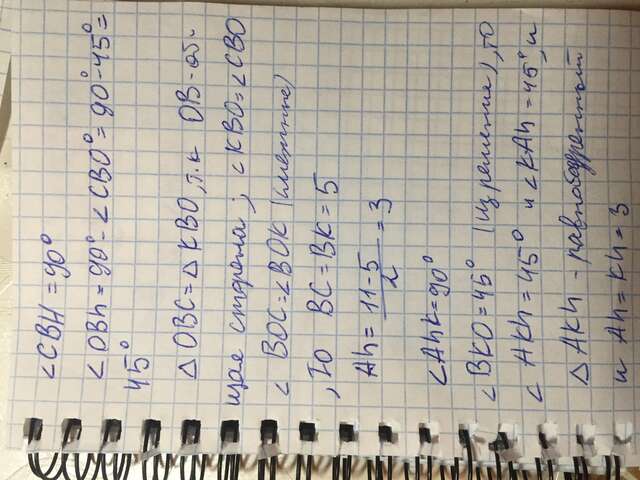 ∠CBH = 90°
∠OBh = 90° - ∠CBO° = 90° - 45° =
45°
△OBC = △KBO, т.к OB - об-
щая сторона; ∠KBO = ∠CBO
∠ BOC = ∠BOK (смежные)
, то BC = BK = 5
Ah = 11-5/2 = 3
∠AhK = 90°
∠BKO = 45° (из решения), то
∠ AKh = 45° и ∠KAh = 45°, и
△AKh - равнобедренный
и Ah = Kh = 3